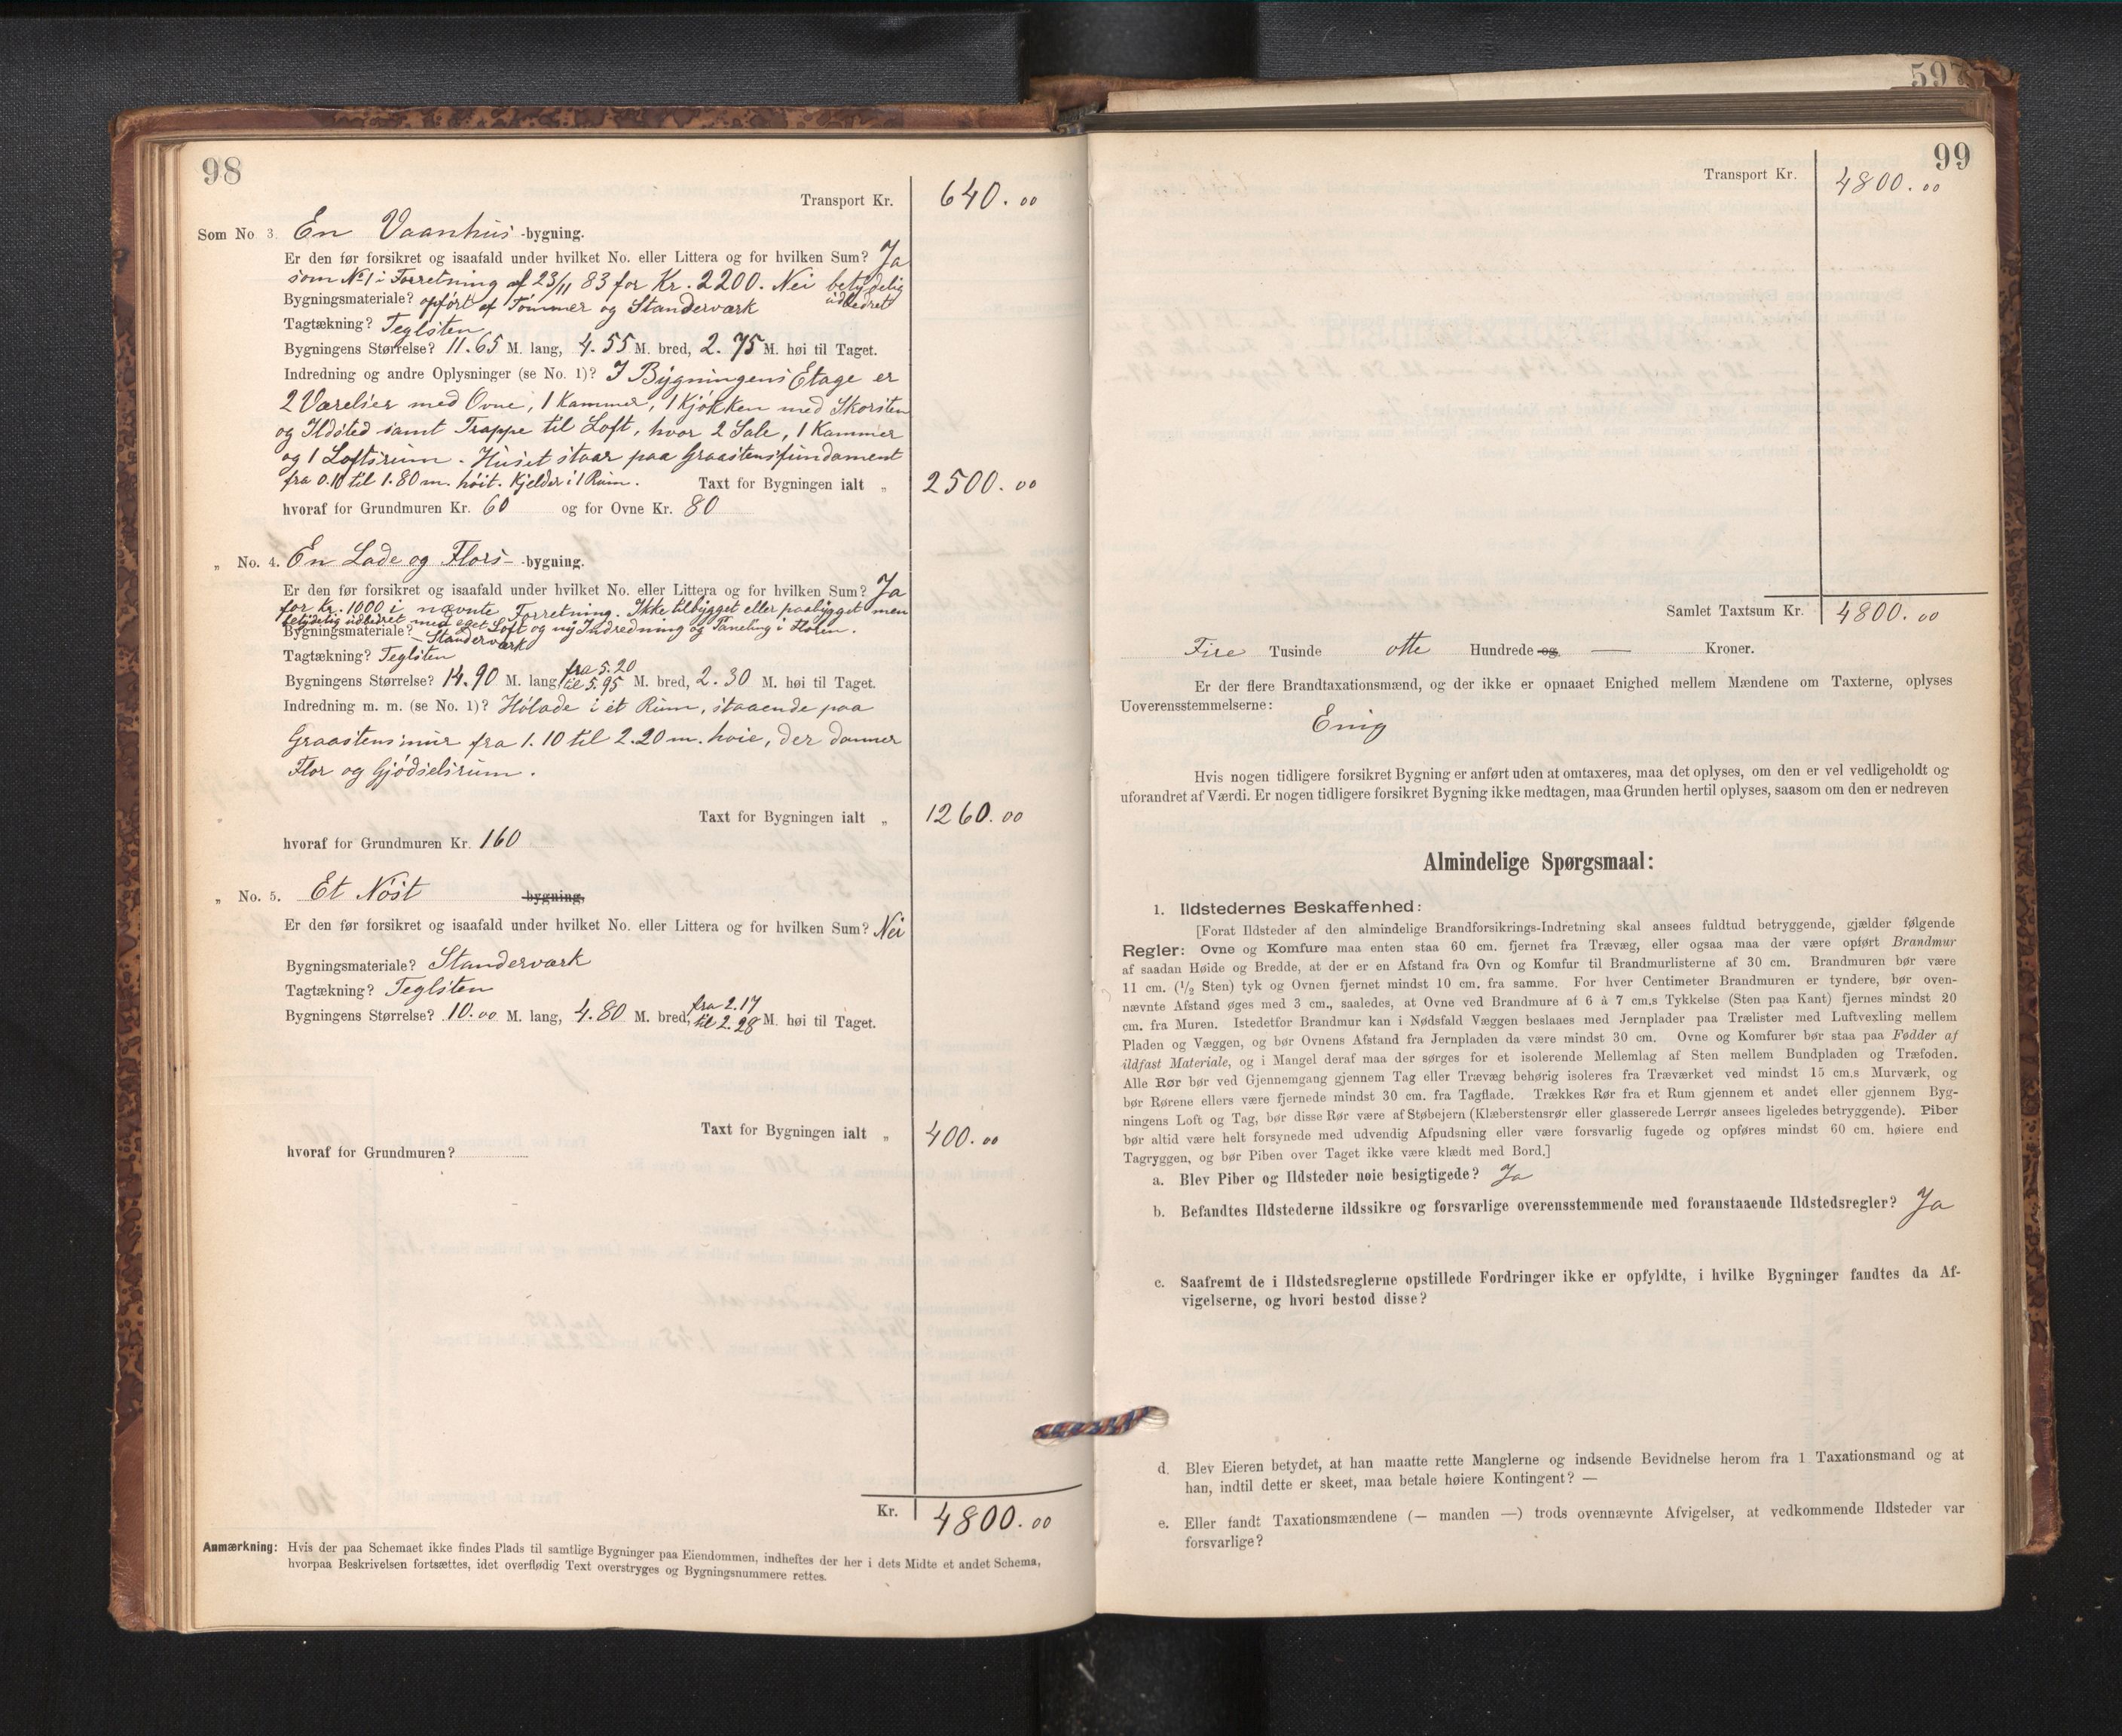 98
Transport Kr. 640.00
Som No 3. En Vaanhus -bygning.
Er den før forsikret og isaafald under hvilket No. eller Littera og for hvilken Sum? Ja
som No 1 i Forretning af 23/11 83 for Kr. 2200. Nei betydelig
udbedret
Bygningsmateriale? opført af Tømmer og Standerværk
Tagtækning? Teglsten
Bygningens Størrelse? 11.65 M. lang, 4.55 M. bred, 2.75 M. høi til Taget.
Indredning og andre Oplysninger (se No. 1)? I Bygningens Etage er
2 Værelser med Ovne, 1 Kammer, 1 Kjøkken med Skorsten
og Ildsted samt Trappe til Loft, hvor 2 Sale, 1 Kammer
og 1 Loftsrum. Huset staar paa Graastensfundament
fra 0.10 til 1.80 m. høit. Kjelder i 1 Rum. Taxt for Bygningen ialt „ 2500.00
hvoraf for Grundmuren Kr. 60 og for Ovne Kr. 80
„ No. 4. En Lade og Flors- -bygning.
Er den før forsikret og isaafald under hvilket No. eller Littera og for hvilken Sum? Ja
for Kr. 1000 i nævnte Forretning. Ikke tilbygget eller paabygget men
betydelig udbedret med eget Loft og ny Indredning og Paneling i Floren.
Bygningsmateriale? – Standerværk
Tagtækning? Teglsten
Bygningens Størrelse? 14.90 M. lang, fra 5.20 til 5.95 M. bred, 2.30 M. høi til Taget.
Indredning m. m. (se No. 1)? Hølade i et Rum, staaende paa
Graastensmur fra 1.10 til 2.20 m. høie, der danner
Flor og Gjødselsrum.
Taxt for Bygningen ialt „ 1260.00
hvoraf for Grundmuren Kr. 160
„ No. 5. Et Nøst bygning,
Er den før forsikret og isaafald under hvilket No. eller Littera og for hvilken Sum? Nei
Bygningsmateriale? Standerværk
Tagtækning? Teglsten
Bygningens Størrelse? 10.00 M. lang, 4.80 M. bred, fra 2.17 til 2.28 M. høi til Taget.
Taxt for Bygningen ialt „ 400.00
hvoraf for Grundmuren?
Kr. 4800.00
Anmærkning: Hvis der paa Schemaet ikke findes Plads til samtlige Bygninger paa Eiendommen, indheftes der her i dets Midte et andet Schema,
hvorpaa Beskrivelsen fortsættes, idet overflødig Text overstryges og Bygningsnummere rettes.
597
99
Transport Kr. 4800.00
Samlet Taxtsum Kr. 4800.00
Fire Tusinde otte Hundrede og — Kroner.
Er der flere Brandtaxationsmænd, og der ikke er opnaaet Enighed mellem Mændene om Taxterne, oplyses
Uoverensstemmelserne:
Enig
Hvis nogen tidligere forsikret Bygning er anført uden at omtaxeres, maa det oplyses, om den er vel vedligeholdt og
uforandret af Værdi. Er nogen tidligere forsikret Bygning ikke medtagen, maa Grunden hertil oplyses, saasom om den er nedreven
Almindelige Spørgsmaal:
1. Ildstedernes Beskaffenhed:
[Forat Ildsteder af den almindelige Brandforsikrings-Indretning skal ansees fuldtud betryggende, gjælder følgende
Regler: Ovne og Komfure maa enten staa 60 cm. fjernet fra Trævæg, eller ogsaa maa der være opført Brandmur
af saadan Høide og Bredde, at der er en Afstand fra Ovn og Komfur til Brandmurlisterne af 30 cm. Brandmuren bør være
11 cm. (1/2 Sten) tyk og Ovnen fjernet mindst 10 cm. fra samme. For hver Centimeter Brandmuren er tyndere, bør oven-
nævnte Afstand øges med 3 cm., saaledes, at Ovne ved Brandmure af 6 à 7 cm.s Tykkelse (Sten paa Kant) fjernes mindst 20
cm. fra Muren. Istedetfor Brandmur kan i Nødsfald Væggen beslaaes med Jernplader paa Trælister med Luftvexling mellem
Pladen og Væggen, og bør Ovnens Afstand fra Jernpladen da være mindst 30 cm. Ovne og Komfurer bør staa paa Fødder af
ildfast Materiale, og i Mangel deraf maa der sørges for et isolerende Mellemlag af Sten mellem Bundpladen og Træfoden.
Alle Rør bør ved Gjennemgang gjennem Tag eller Trævæg behørig isoleres fra Træværket ved mindst 15 cm.s Murværk, og
bør Rørene ellers være fjernede mindst 30 cm. fra Tagflade. Trækkes Rør fra et Rum gjennem et andet eller gjennem Byg-
ningens Loft og Tag, bør disse Rør være af Støbejern (Klæberstensrør eller glasserede Lerrør ansees ligeledes betryggende). Piber
bør altid være helt forsynede med udvendig Afpudsning eller være forsvarlig fugede og opføres mindst 60 cm. høiere end
Tagryggen, og bør Piben over Taget ikke være klædt med Bord.]
a. Blev Piber og Ildsteder nøie besigtigede? Ja
b. Befandtes Ildstederne ildssikre og forsvarlige overensstemmende med foranstaaende Ildstedsregler? Ja
c. Saafremt de i Ildstedsreglerne opstillede Fordringer ikke er opfyldte, i hvilke Bygninger fandtes da Af-
vigelserne, og hvori bestod disse?
d. Blev Eieren betydet, at han maatte rette Manglerne og indsende Bevidnelse herom fra 1 Taxationsmand og at
han, indtil dette er skeet, maa betale høiere Kontingent? —
e. Eller fandt Taxationsmændene (— manden —) trods ovennævnte Afvigelser, at vedkommende Ildsteder var
forsvarlige?